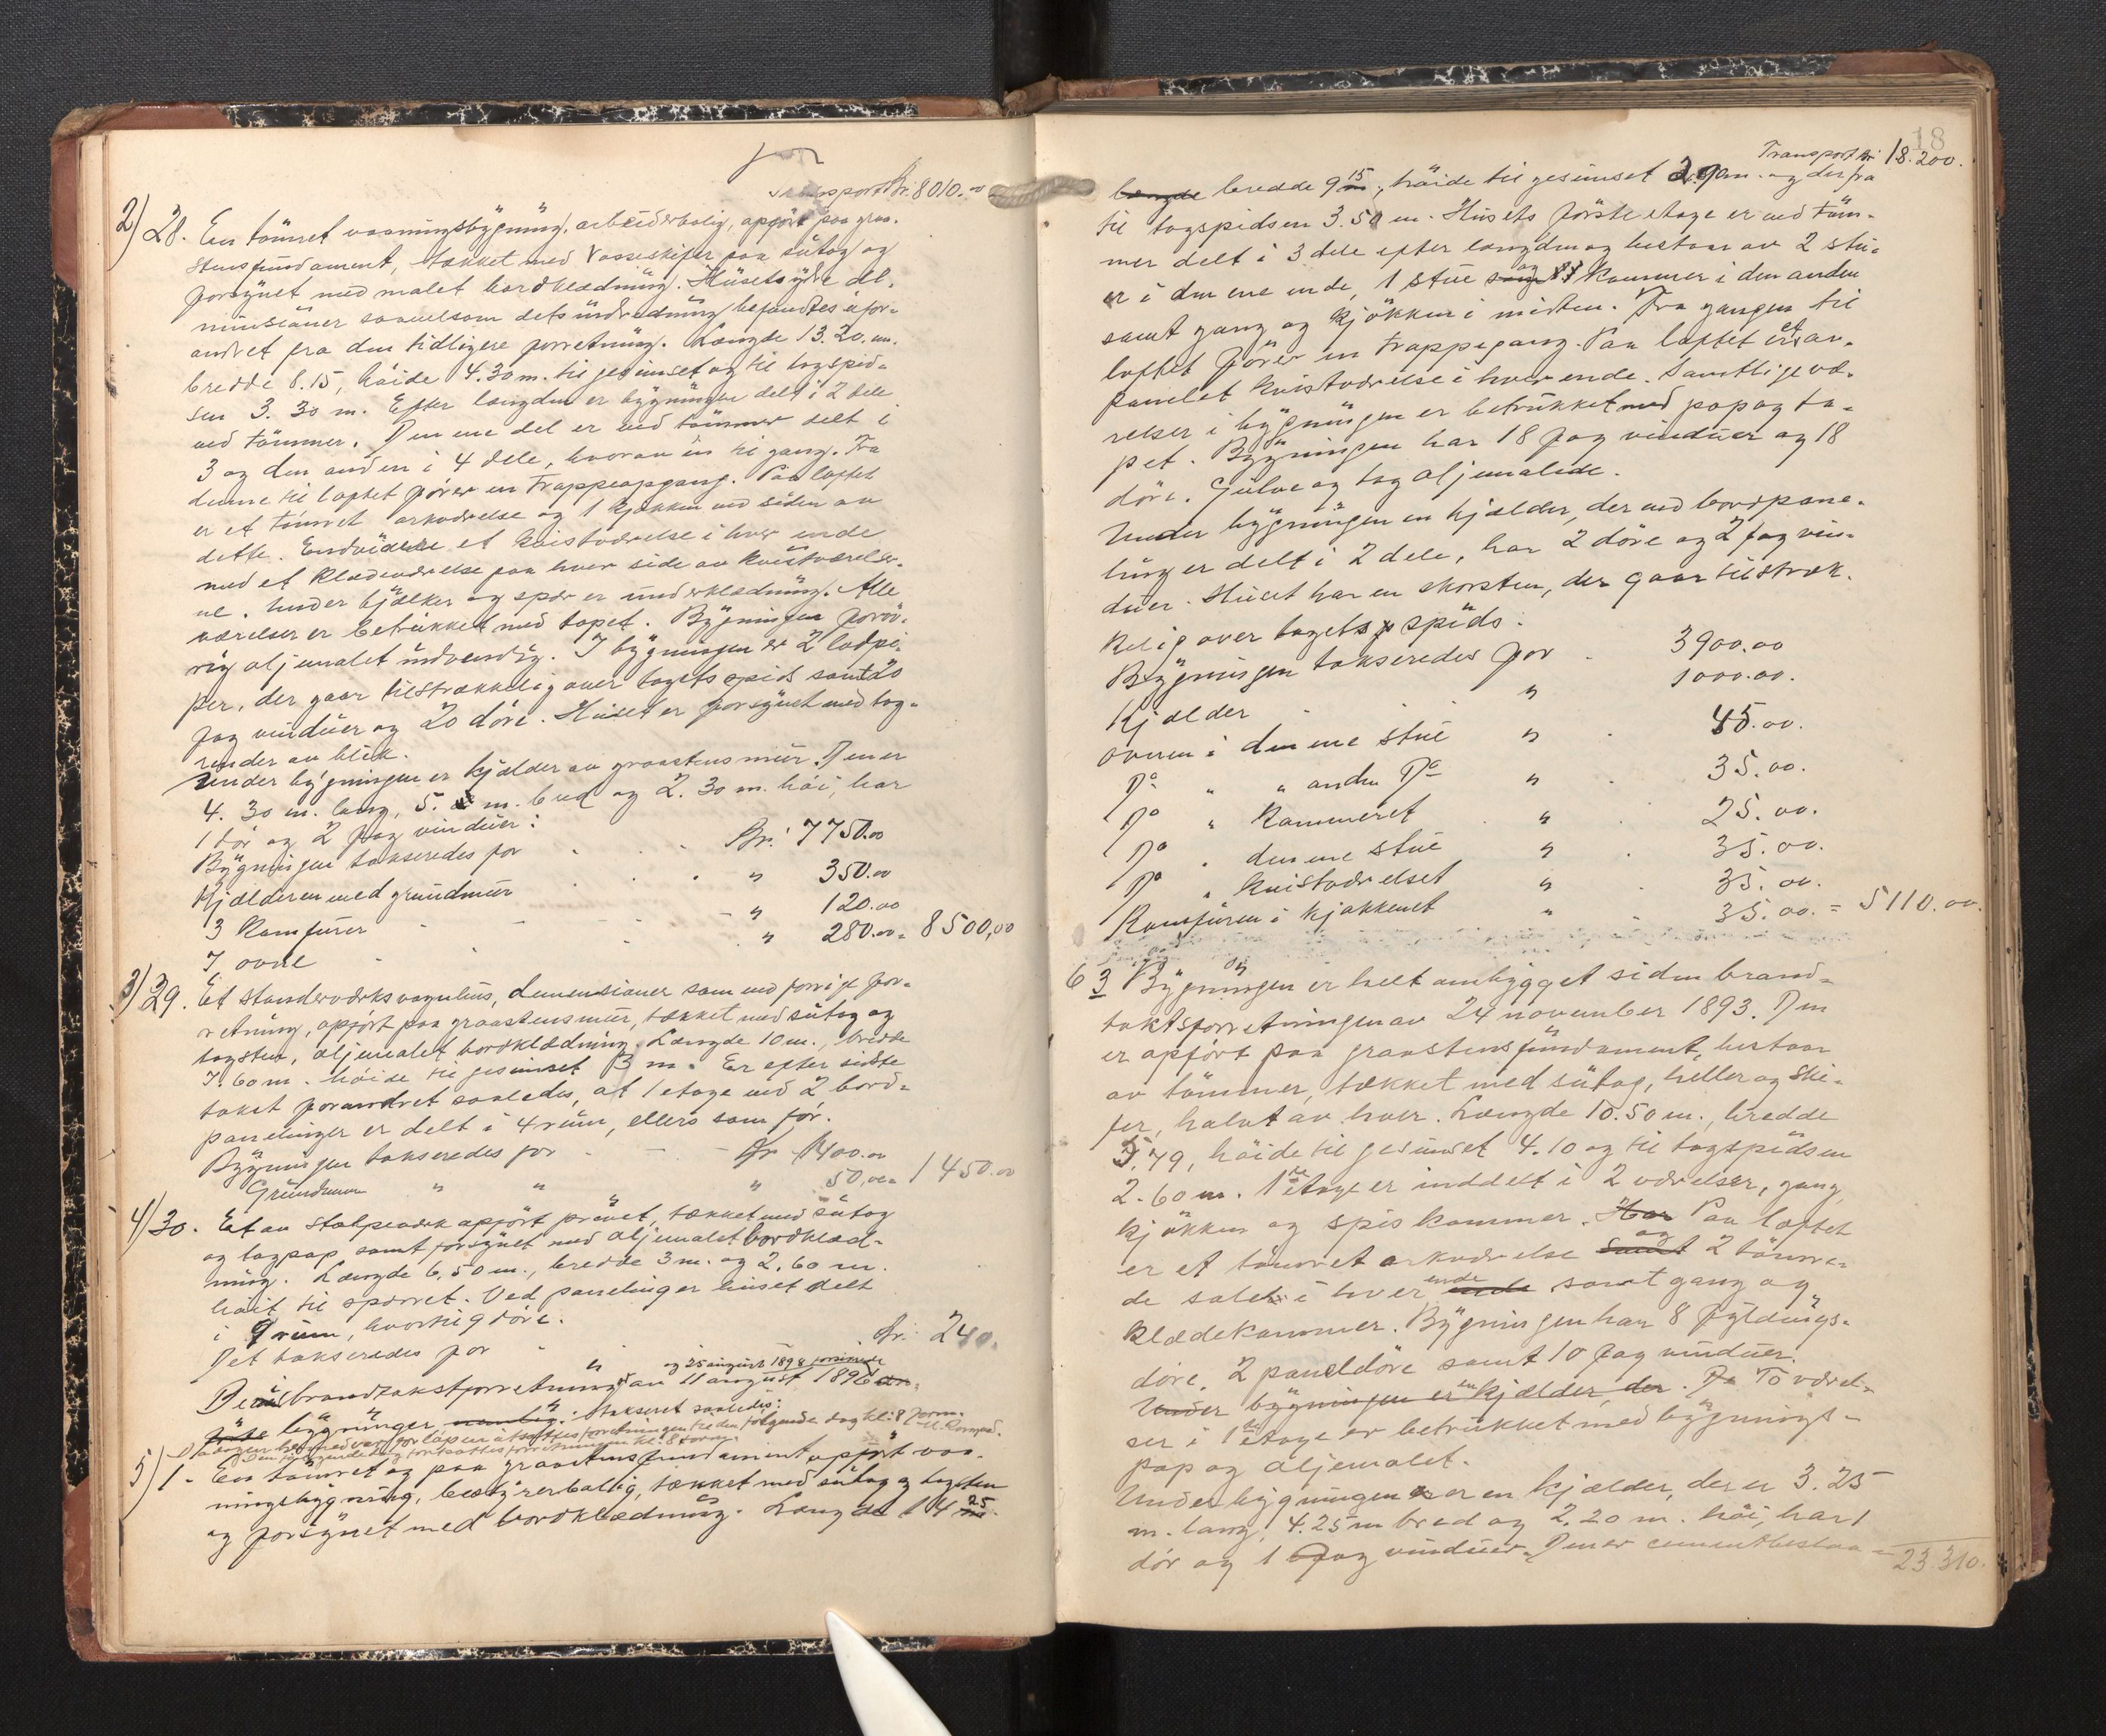 Transport Kr. 8010.00
2) 28. En tömret vaaningsbygning, arbeiderbolig, opfört paa graa-
stensfundament, tækket med Vosseskifer paa sutag og
forsynet med malet bordklædning. Husets ydre di-
mensioner saavelsom dets indredning befandtes ufor-
andret fra den tidligere forretning. Længde 13.20 m.
bredde 8.15, höide 4.30 m. til gesimset og til tagspid-
sen 3.30 m. Efter længden er bygningen delt i 2 dele
ved tömmer. Den ene del er ved tömmer delt i
3 og den anden i 4 dele, hvorav en til gang. Fra
denne til loftet förer en trappeopgang. Paa loftet
er et tömret arkværelse og 1 kjökken ved siden av
dette. Endvidere et kvistværelse i hver ende
med et klædeværelse paa hver side av kvistværelser-
ne. Under bjælker og spær er underklædning. Alle
værelser er betrukket med tapet. Bygningen foröv-
rig oljemalet indvendig. I bygningen er 2 ladpi-
per, der gaar tilstrækkelig over tagets spids samt 25
fag vinduer og 20 döre. Huset er forsynet med tag-
render av blik.
Under bygningen er kjælder av graastensmur. Den er
4.30 m. lang, 5. m. bred og 2.30 m. höi, har
1 dör og 2 fag vinduer:
Bygningen takseredes for Kr. 7750.00
Kjælderen med grundmur " 350.00
3 Komfurer " 120.00
7 ovne " 280.00 = 8500,00
3) 29. Et standerværks vognhus, demensioner som ved forrige for-
retning, opfört paa graastensmur, tækket med sutag og
tagsten, oljemalet bordklædning. Længde 10 m., bredde
7.60 m. höide til gesimset 3 m. Er efter sidste
takst forandret saaledes, at 1 etage ved 2 bord-
panelinger er delt i 4 rum, ellers som för.
Bygningen takseredes for Kr 1400.00
Grundmur " " " 50,00 = 1450.00
4) 30. Et av stolpeværk opfört privet, tækket med sutag
og tagpap, samt forsynet med oljemalet bordklæd-
ning. Længde 6,50 m., bredde 3 m. og 2,60 m.
höit til sparret. Ved panelinger huset delt
i 9 rum, hvortil 9 döre.
Det takseredes for " Kr. 240.
og 25 august 1898
brandtakstforretning av 11 august 1896
bygninger takseret saaledes:
5) 1. En tömret og paa graastensfundament opfört vaa-
ningsbygning, bestyrerbolig, tækket med sutag og tagsten
og forsynet med bordklædning. Længde 14 25
18
Transport Kr. 18.200.
længde bredde 9 15 m, höide til gesimset og derfra
til tagspidsen 3.50 m. Husets förste etage er ved töm-
mer delt i 3 dele efter længden og bestaar av 2 stu-
er i den ene ende, 1 stue og kammer i den anden
samt gang og kjökken i midten. Fra gangen til
loftet förer en trappegang. Paa loftet et ar-
panelet kvistværelse i hver ende. Samtlige væ-
relser i bygningen er betrukket med pap og ta-
pet. Bygningen har 18 fag vinduer og 18
döre. Gulve og tag oljemalede.
Under bygningen en kjælder, der ved bordpane-
ling er delt i 2 dele, har 2 döre og 2 fag vin-
duer. Huset har en skorsten, der gaar tilstræk-
kelig over tagets spids.
Bygningen takseredes for 3900.00
Kjælder " 1000.00.
ovnen i den ene stue " 45.00.
Do " " andre Do " 35.00.
Do " Kammeret " 25.00.
Do " den ene stue " 35.00.
Do " kvistværelset " 35.00.
Komfuren i kjökkenet " 35.00. = 5110.00
6 3 Bygningen er helt ombygget siden brand-
takstforretningen av 24 november 1893. Den
er opfört paa graastensfundament, bestaar
av tömmer, tækket med sutag, heller og ski-
fer, halvt av hver. Længde 10.50 m., bredde
5.79, höide til gesimset 4.10 og til tagspidsen
2.60 m. 1ste etage er inddelt i 2 værelser, gang
kjökken og spiskammer. Har Paa loftet
er et tömret arkværelse samt og 2 tömre-
de saler i hver ende ende samt gang og
klædekammer. Bygningen har 8 fyldings-
döre, 2 paneldöre samt 10 fag vinduer.
Under bygningen er en kjælder, der . To værel-
ser i 1ste etage er betrukket med bygnings-
pap og oljemalet.
Under bygningen er en kjælder, der er 3.25
m. lang, 4.25 m bred og 2,20 m. höi, har 1
dör og 1 fag vinduer. Den er cementbestaa-
23.310.